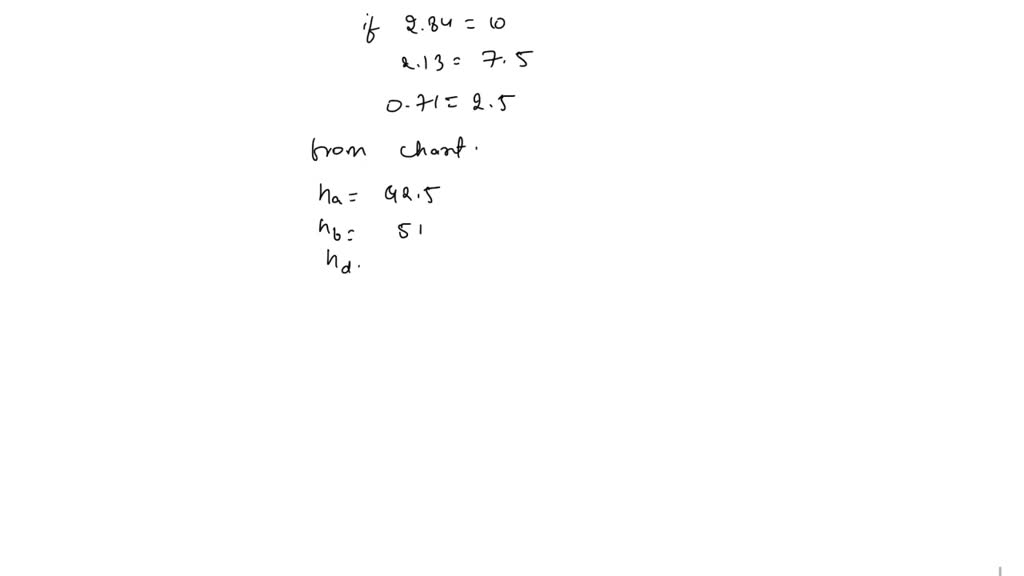 if 2.84 = 10
2.13 = 7.5
0.71 = 2.5
from chart.
ha = 42.5
hb = 51
hd.